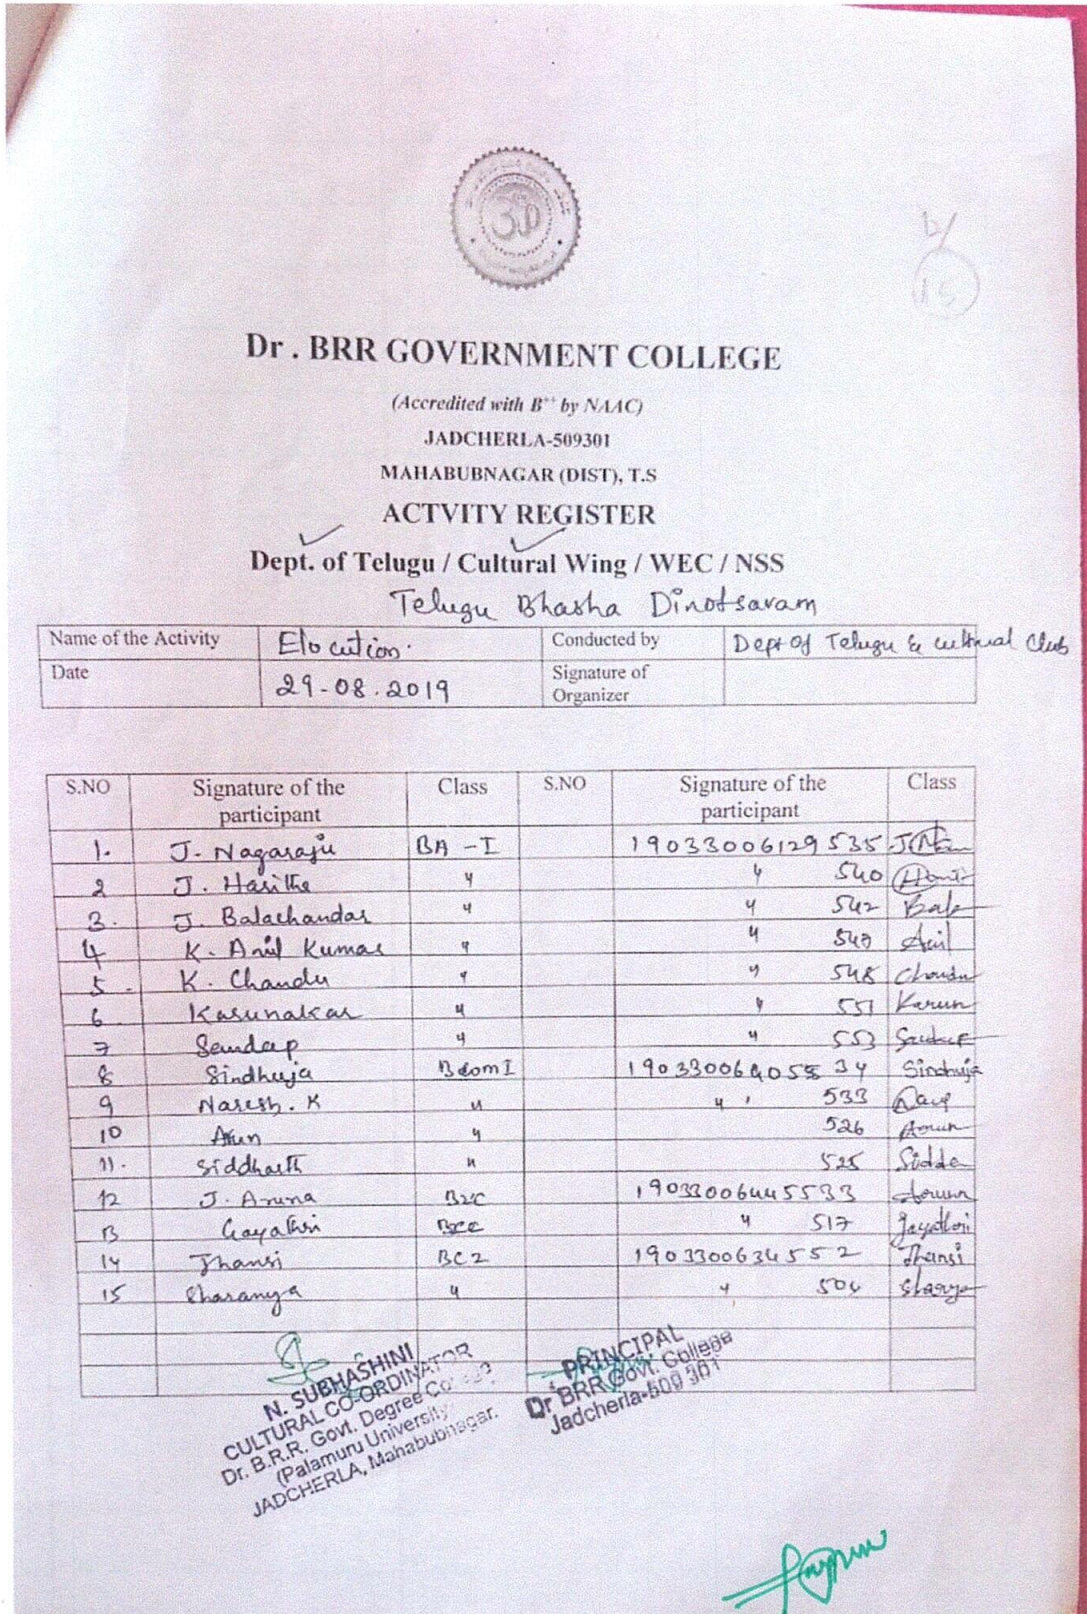 Dr . BRR GOVERNMENT COLLEGE
(Accredited with B++ by NAAC)
JADCHERLA-509301
MAHABUBNAGAR (DIST), T.S
ACTVITY REGISTER
Dept. of Telugu / Cultural Wing / WEC / NSS
Telugu Bhasha Dinotsavam
Name of the Activity Elocution. Conducted by Dept of Telugu & cultural Club
Date 29-08.2019 Signature of Organizer
S.NO Signature of the participant Class S.NO Signature of the participant Class
1. J. Nagaraju BA - I 19033006129535
2 J. Haritha " " 540
3. J. Balachandar " " 542 Bala
4 K. Anil Kumar " " Anil
5. K. Chandu " " 548 Chandu
6 Karunakar " " 551 Karun
7 Sandep " " 553
8 Sindhuja Bcom I 34 Sindhuja
9 Naresh. K " " 533
10 Arun " 526 Arun
11. Siddharth " 525
12 J. Aruna 19033006445533
13 Gayathri " 517 Gayathri
14 Jhansi BCZ 1903300634552 Jhansi
15 Sharanya " " 504
N. SUBHASHINI
CULTURAL CO-ORDINATOR
Dr. B.R.R. Govt. Degree College
(Palamuru University
JADCHERLA, Mahabubnagar.
PRINCIPAL
Dr BRR Govt. College
Jadcherla-509 301